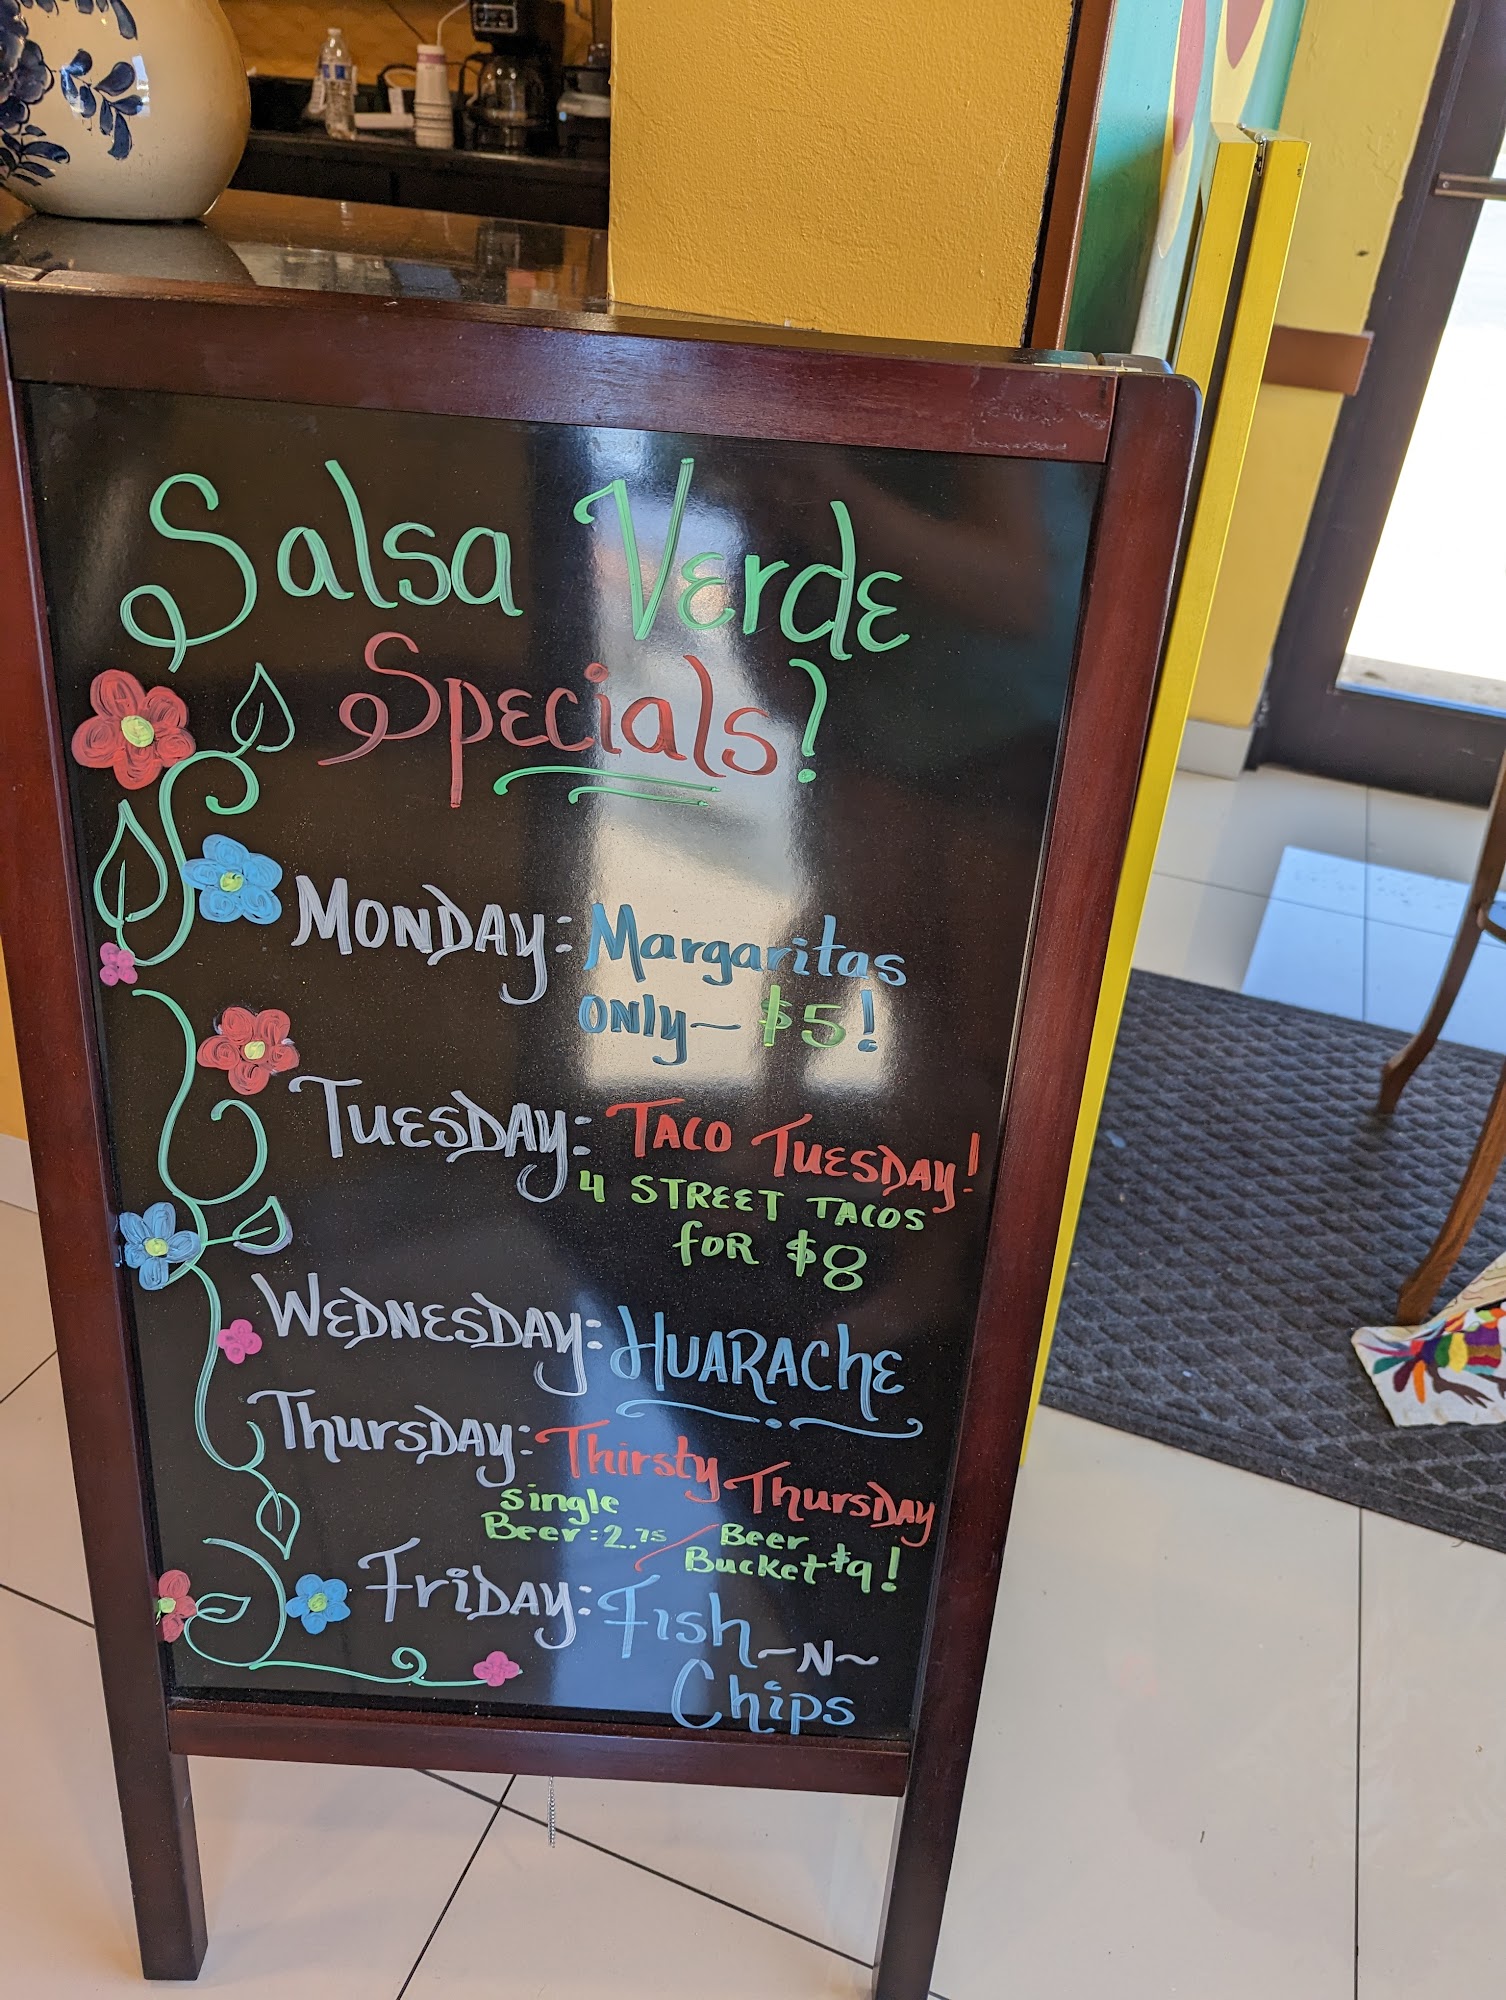 Salsa Verde
Specials!
MONDAY: Margaritas
ONLY~ $5!
TUESDAY: TACO TUESDAY!
4 STREET TACOS
FOR $8
WEDNESDAY: HUARACHE
THURSDAY: Thirsty THURSDAY
Single
Beer: 2.75 / Beer
Bucket $9!
FRIDAY: Fish ~N~
Chips